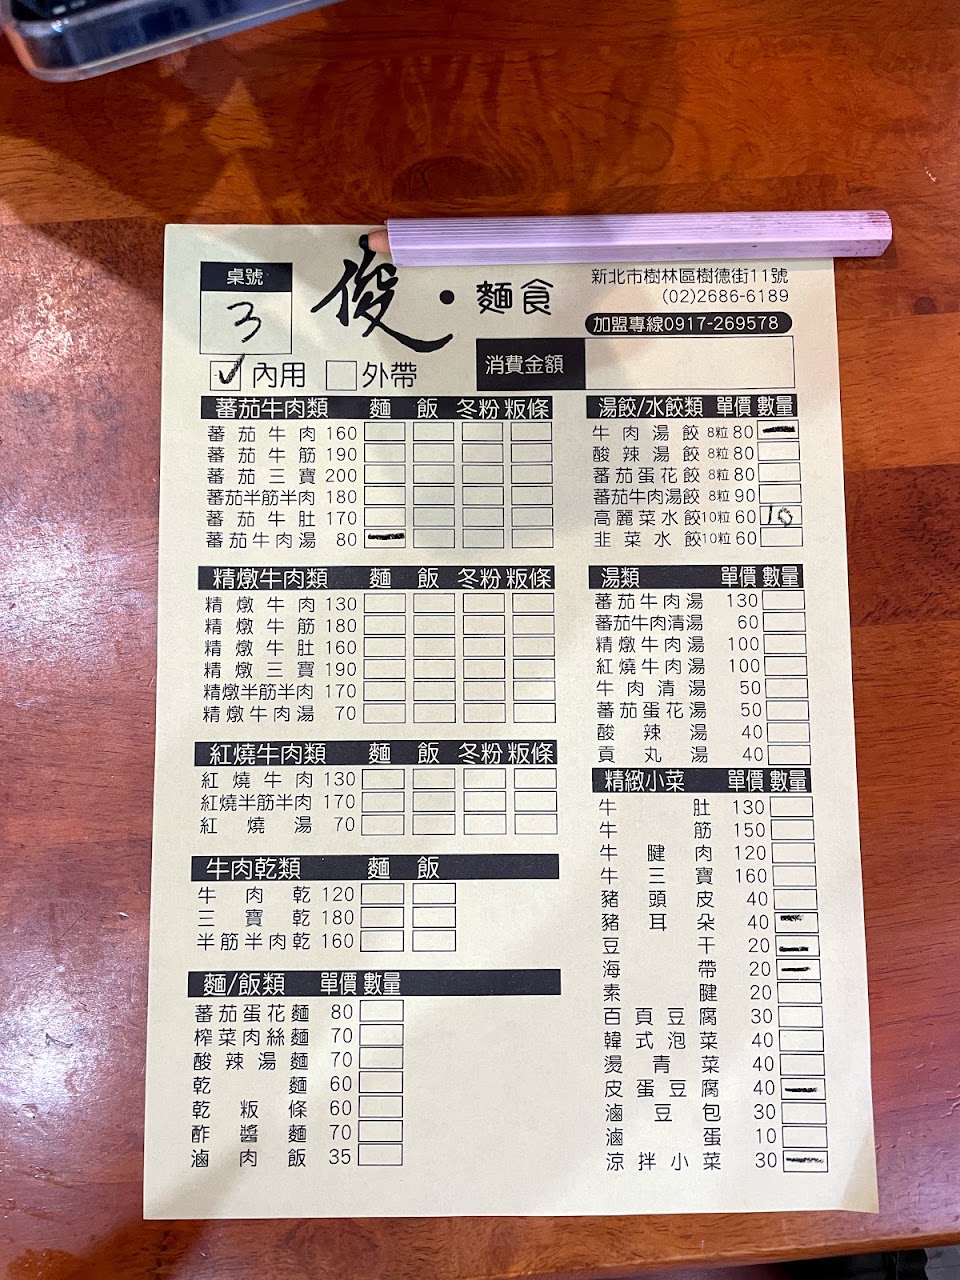 桌號
3
俊・麵食
新北市樹林區樹德街11號
(02)2686-6189
加盟專線0917-269578
✓內用 外帶
消費金額
蕃茄牛肉類 麵 飯 冬粉 粄條
蕃茄牛肉 160
蕃茄牛筋 190
蕃茄三寶 200
蕃茄半筋半肉 180
蕃茄牛肚 170
蕃茄牛肉湯 80 一
精燉牛肉類 麵 飯 冬粉 粄條
精燉牛肉 130
精燉牛筋 180
精燉牛肚 160
精燉三寶 190
精燉半筋半肉 170
精燉牛肉湯 70
紅燒牛肉類 麵 飯 冬粉 粄條
紅燒牛肉 130
紅燒半筋半肉 170
紅燒湯 70
牛肉乾類 麵 飯
牛肉乾 120
三寶乾 180
半筋半肉乾 160
麵/飯類 單價 數量
蕃茄蛋花麵 80
榨菜肉絲麵 70
酸辣湯麵 70
乾麵 60
乾粄條 60
酢醬麵 70
滷肉飯 35
湯餃/水餃類 單價 數量
牛肉湯餃 8粒 80 一
酸辣湯餃 8粒 80
蕃茄蛋花餃 8粒 80
蕃茄牛肉湯餃 8粒 90
高麗菜水餃 10粒 60 10
韭菜水餃 10粒 60
湯類 單價 數量
蕃茄牛肉湯 130
蕃茄牛肉清湯 60
精燉牛肉湯 100
紅燒牛肉湯 100
牛肉清湯 50
蕃茄蛋花湯 50
酸辣湯 40
貢丸湯 40
精緻小菜 單價 數量
牛肚 130
牛筋 150
牛腱肉 120
牛三寶 160
豬頭皮 40
豬耳朵 40 一
豆干 20 一
海帶 20 一
素腱 20
百頁豆腐 30
韓式泡菜 40
燙青菜 40
皮蛋豆腐 40 一
滷豆包 30
滷蛋 10
涼拌小菜 30 一